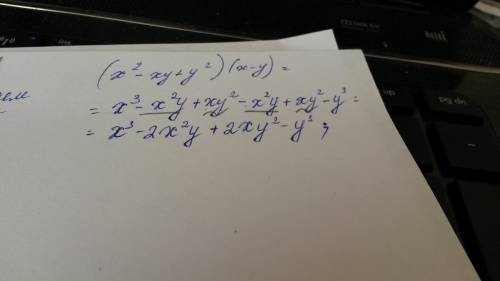 (x² - xy + y²)(x-y) =
= x³ - x²y + xy² - x²y + xy² - y³ =
= x³ - 2x²y + 2xy² - y³ ;